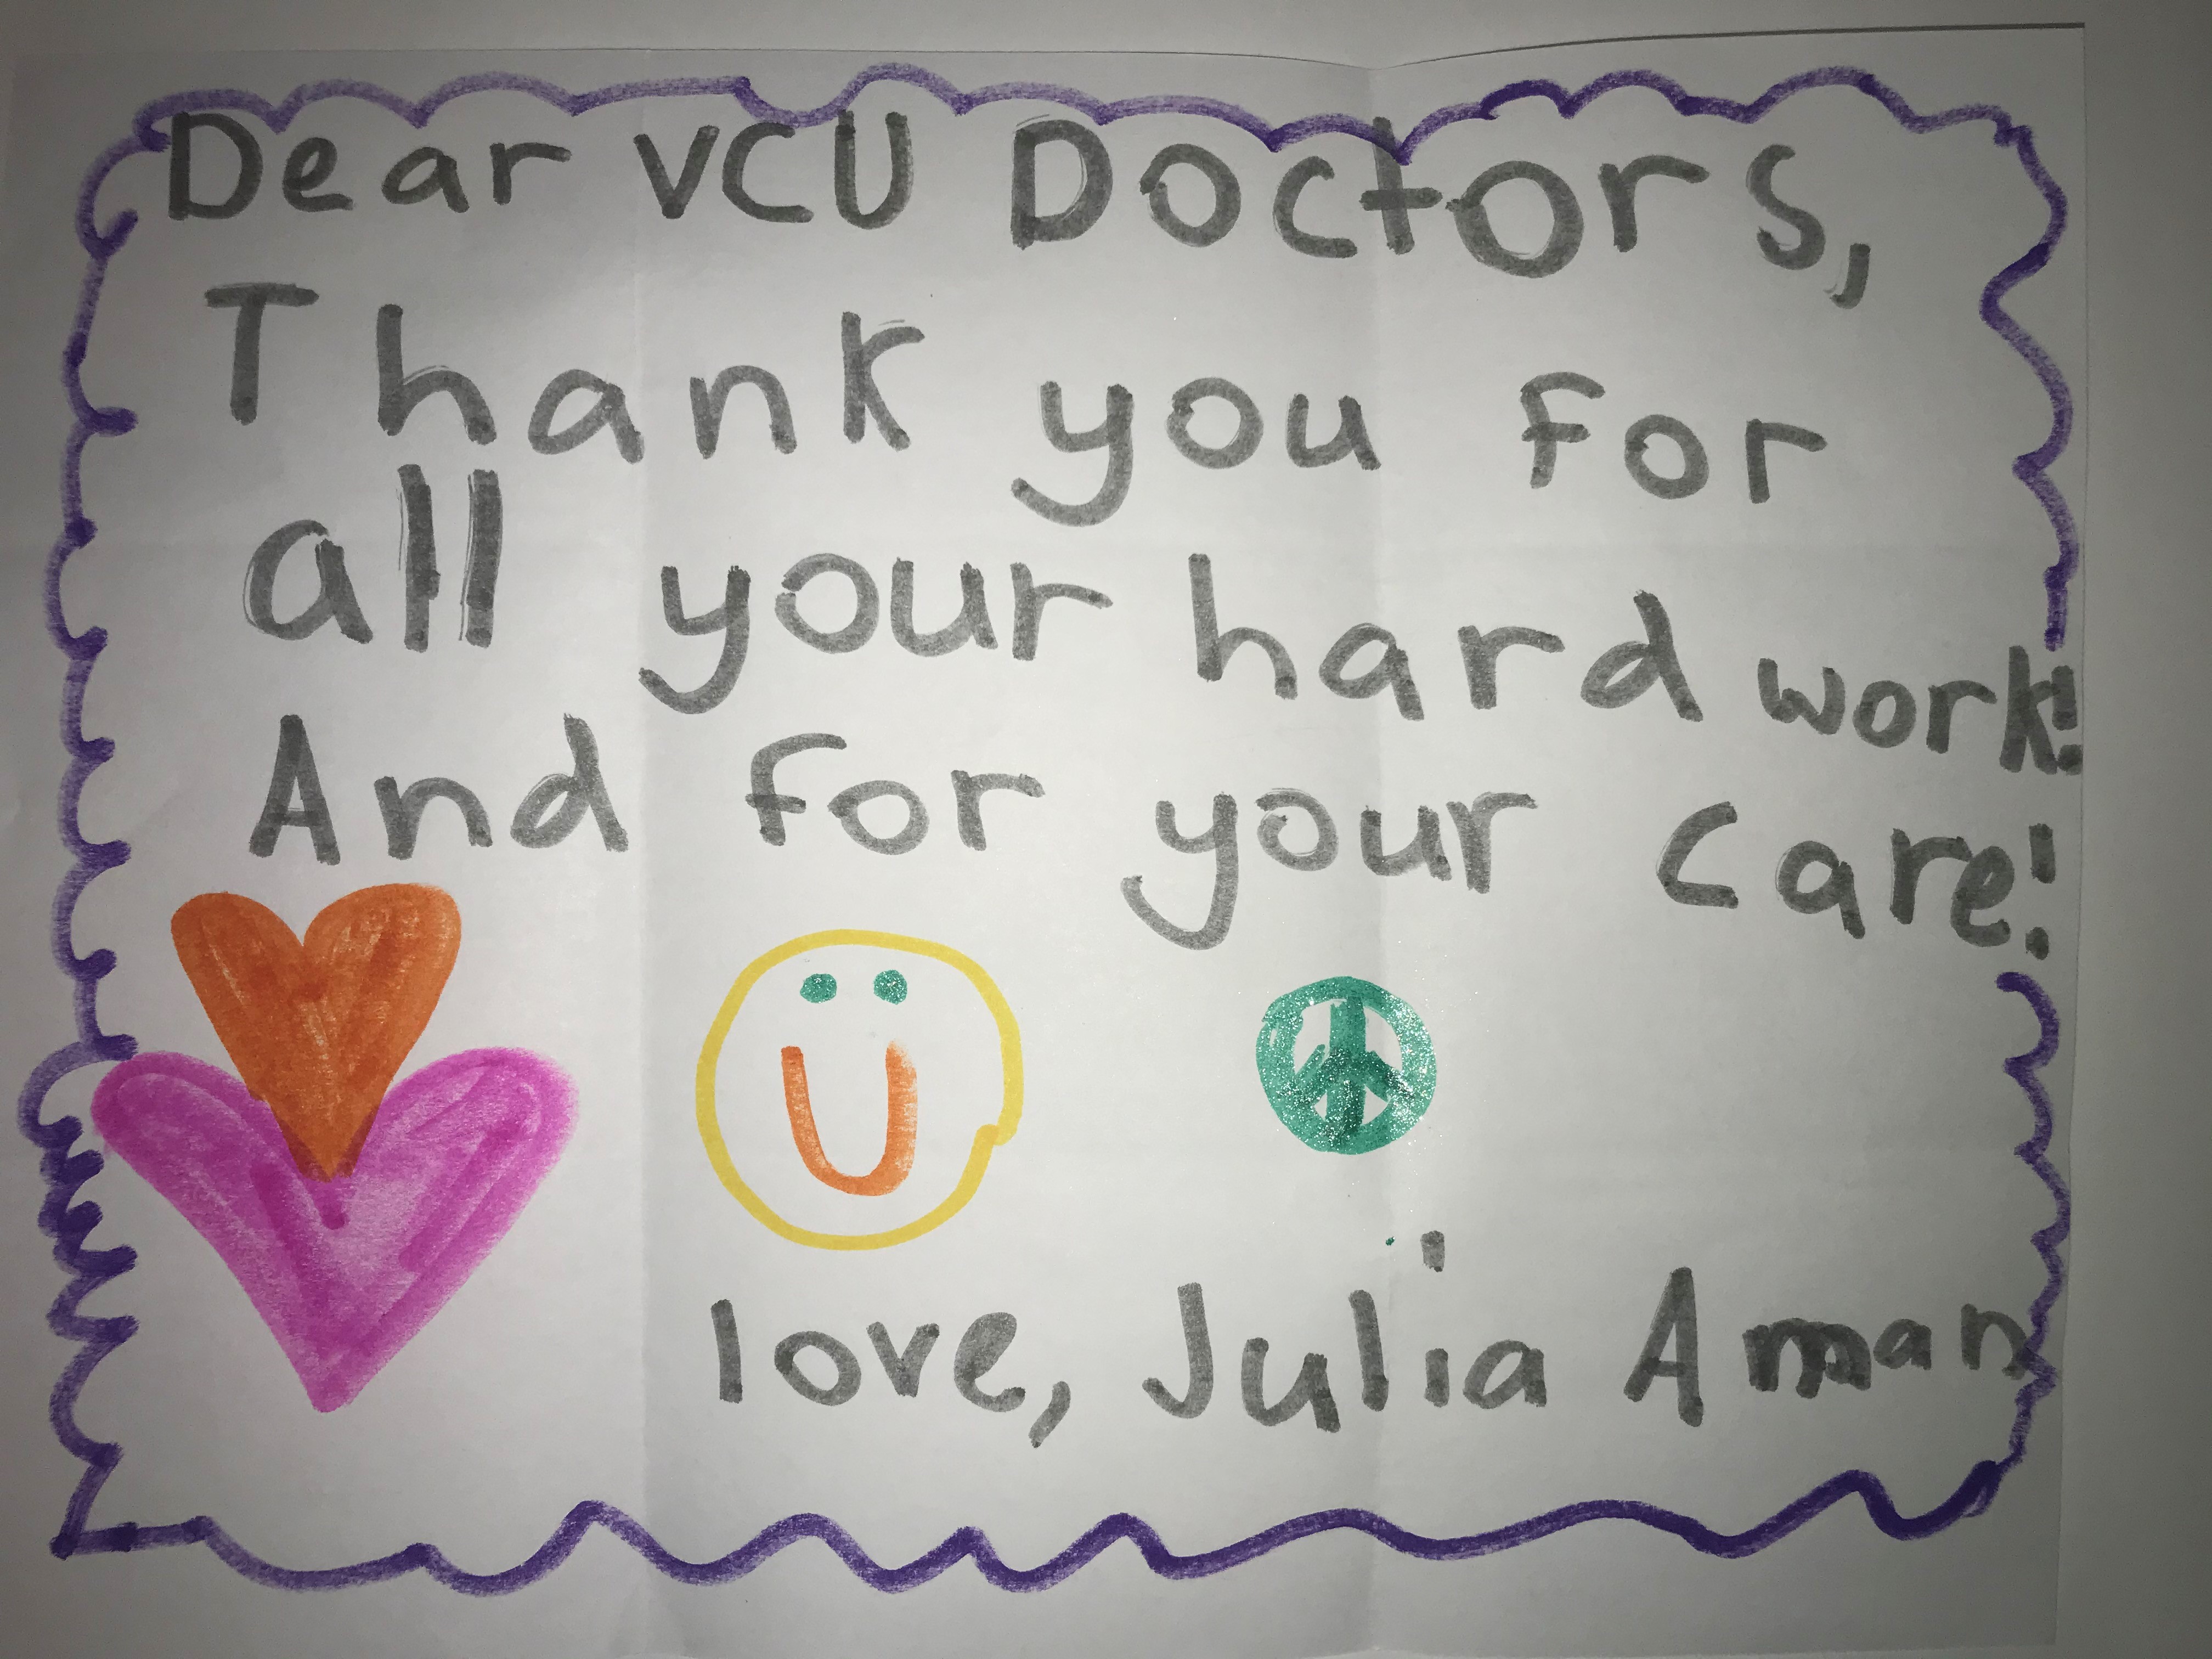 Dear VCU Doctors,
Thank you for
all your hard work!
And for your care!
love, Julia Aman